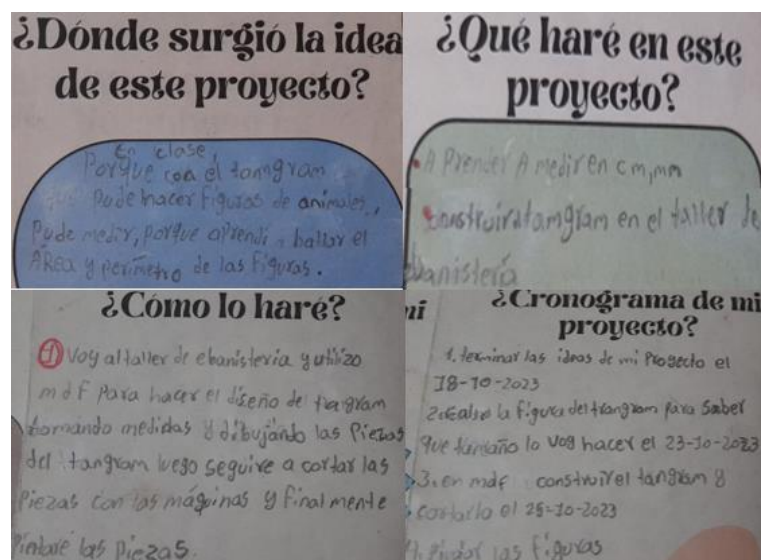 ¿Dónde surgió la idea
de este proyecto?
En clase,
Porque con el tanngram
Pude hacer figuras de animales,
Pude medir, porque aprendi a hallar el
Area y perímetro de las figuras.
¿Qué haré en este
proyecto?
A Prender A medir en cm, mm
construir el tamgram en el taller de
ebanistería
¿Cómo lo haré?
1 Voy al taller de ebanisteria y utilizo
mdf Para hacer el diseño del tragram
tomando medidas y dibujando las Piezas
del tangram luego seguire a cortar las
Piezas con las máquinas y finalmente
Pintare las Piezas.
mi
¿Cronograma de mi
proyecto?
1. terminar las ideas de mi Progecto el
18-10-2023
2. realizo la figura del trangram para Saber
que tamaño lo voy hacer el 23-10-2023
3. en mdf construir el tangram y
cortarlo el 25-10-2023
4. Pintar las figuras